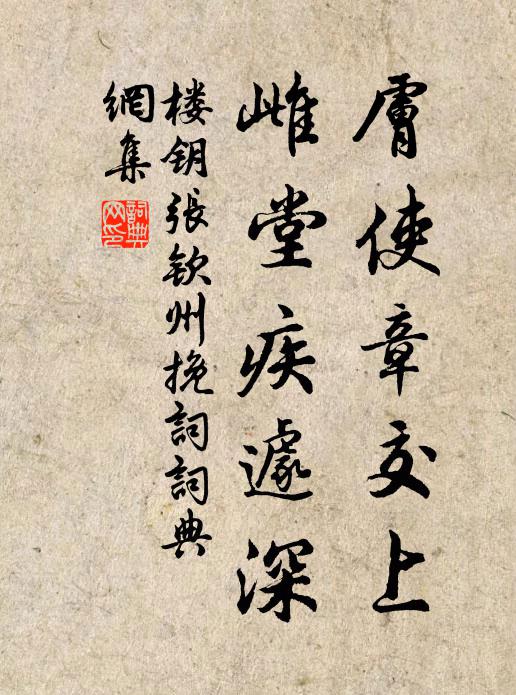 膚使章交上
雌堂疾遽深
楼钥張欽州挽詞詞典
網集
詞典
网印